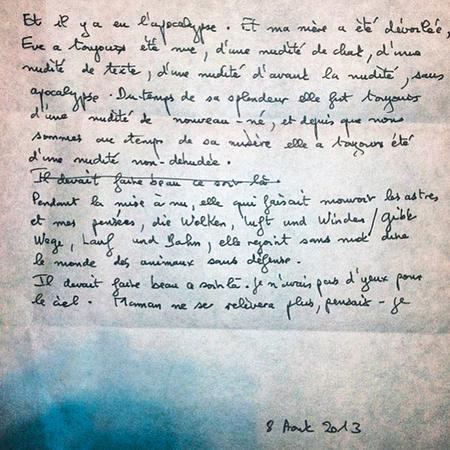 Et il y a eu l'apocalypse. Et ma mère a été dévoilée,
Eve a toujours été nue, d'une nudité de chat, d'une
nudité de texte, d'une nudité d'avant la nudité, sans
apocalypse. Du temps de sa splendeur elle fut toujours
d'une nudité de nouveau-né, et depuis que nous
sommes au temps de sa misère elle a toujours été
d'une nudité non-dénudée.
Il devait faire beau ce soir là.
Pendant la mise à nu, elle qui faisait mouvoir les astres
et mes pensées, die Wolken, Luft und Winden / gibt
Wege, Lauf und Bahn, elle rejoint sans mot dire
le monde des animaux sans défense.
Il devait faire beau ce soir là. Je n'avais pas d'yeux pour
le ciel. Maman ne se relèvera plus, pensais-je
8 Août 2013